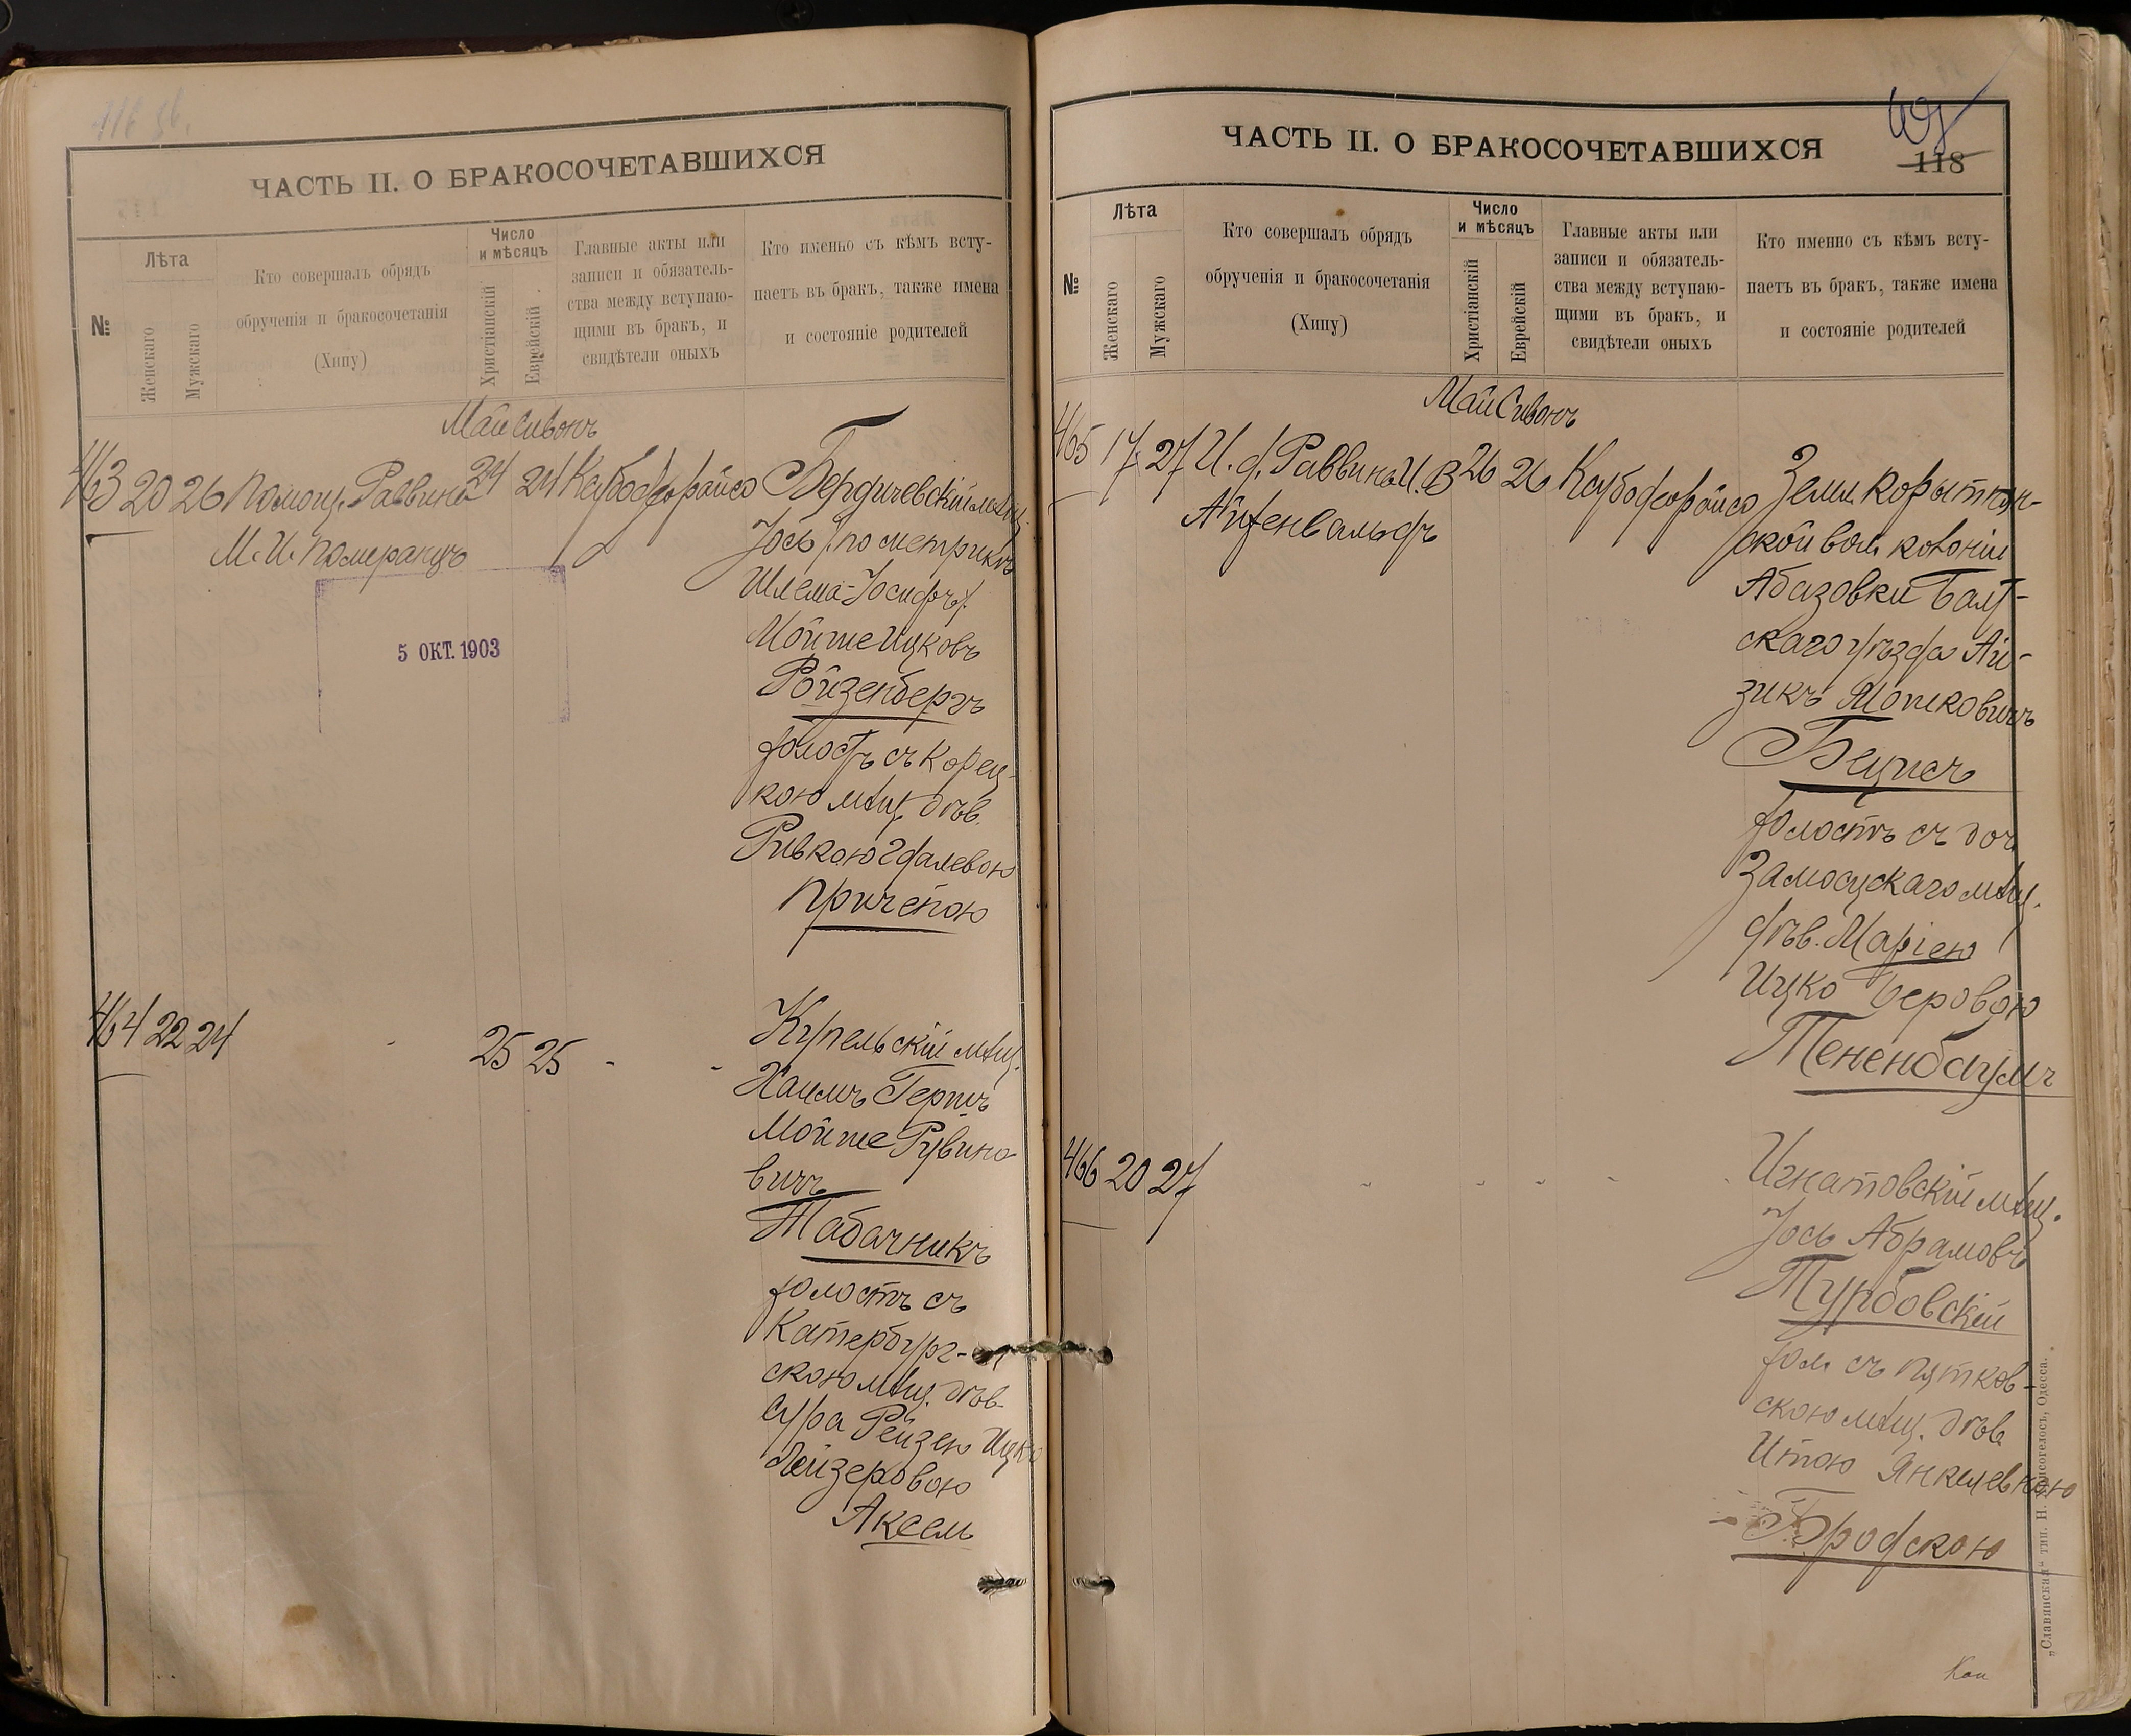 ЧАСТЬ II. О БРАКОСОЧЕТАВШИХСЯ
№
Лѣта
Женскаго
Мужскаго
Кто совершалъ обрядъ
обрученія и бракосочетанія
(Хипу)
Число
и мѣсяцъ
Христіанскій
Еврейскій
Главные акты или
записи и обязатель-
ства между вступаю-
щими въ бракъ, и
свидѣтели оныхъ
Кто именно съ кѣмъ всту-
паетъ въ бракъ, также имена
и состояніе родителей
Май Сивонъ
463 20 26 Помощ. Раввина 24 24 Ксубо дерайсо Бердичевскій мѣщ.
М. И. Померанцъ
Іось (по метрикѣ
Шлема-Іосифъ)
Мойше Ицковъ
Ройзенбергъ
холостъ съ Корец-
кою мѣщ. дѣв.
Ривкою Гдалевою
Причепою
5 ОКТ. 1903
464 22 24 - 25 25 - - Купельскій мѣщ.
Хаимъ Гершъ
Мойше Рувино
вичъ
Табачникъ
холостъ съ
Катербург-
скою мѣщ. дѣв.
Сура Рейзею Ицко
Лейзеровою
Аксель
ЧАСТЬ II. О БРАКОСОЧЕТАВШИХСЯ
118
№
Лѣта
Женскаго
Мужскаго
Кто совершалъ обрядъ
обрученія и бракосочетанія
(Хипу)
Число
и мѣсяцъ
Христіанскій
Еврейскій
Главные акты или
записи и обязатель-
ства между вступаю-
щими въ бракъ, и
свидѣтели оныхъ
Кто именно съ кѣмъ всту-
паетъ въ бракъ, также имена
и состояніе родителей
Май Сивонъ
465 17 27 И. д. Раввина И. В 26 26 Ксубо дерайсо Земл. Корытнян-
Айзенвальдъ
ской вол. колоніи
Абазовки Балт-
скаго уѣзда Ай-
зикъ Мошковичъ
Бецисъ
холостъ съ доч.
Замосцскаго мѣщ.
дѣв. Маріею
Ицко Беровою
Тененбаумъ
466 20 27 - - - - Игнатовскій мѣщ.
Іось Абрамовъ
Турбовскій
хол. съ Путков-
скою мѣщ. дѣв.
Итою Янкелевною
Бродскою
„Славянская“ тип. Н. Хрисогелосъ, Одесса.